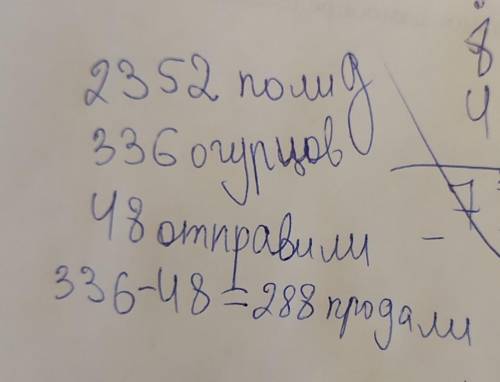 2352 помид
336 огурцов
48 отправили
336-48=288 продали
8
4
7